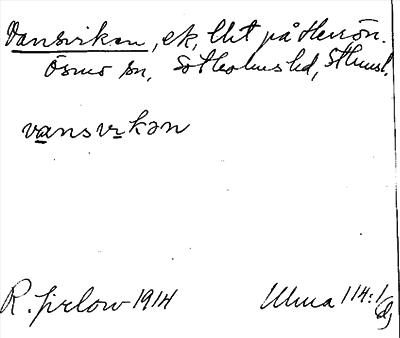 Vansviken, ek, lht på Herrön.
Ösmo sn, Sotholms hd, Sthmsl.
vansvikən
R. Jirlow 1914 Ulma 114:1